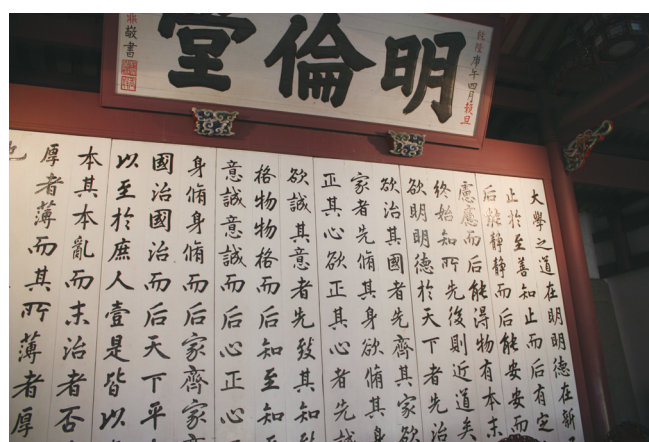 明倫堂
庚午四月穀旦
敬書
大學之道在明明德在新
止於至善知止而后有定
后能靜靜而后能安安而
慮慮而后能得物有本末
終始知所先後則近道矣
欲明明德於天下者先治
欲治其國者先齊其家欲
家者先脩其身欲脩其身
正其心欲正其心者先誠
欲誠其意者先致其知
格物物格而后知至知
意誠意誠而后心正心
身脩身脩而后家齊家
國治國治而后天下平
以至於庶人壹是皆以
本其本亂而末治者否
厚者薄而其所薄者厚
也